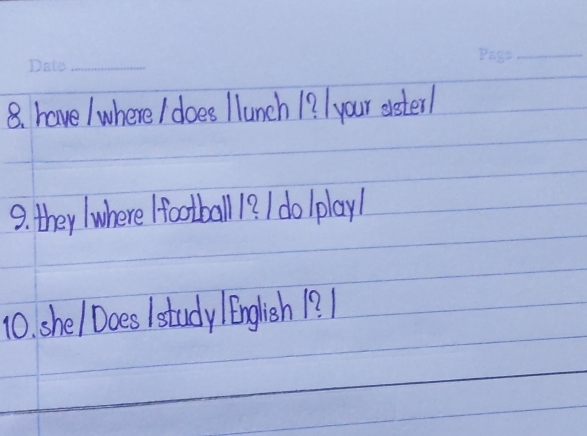 Date
Page
8. have / where / does / lunch / ? / your sister /
9. they / where / football / ? / do / play /
10. she / Does / study / English / ? /